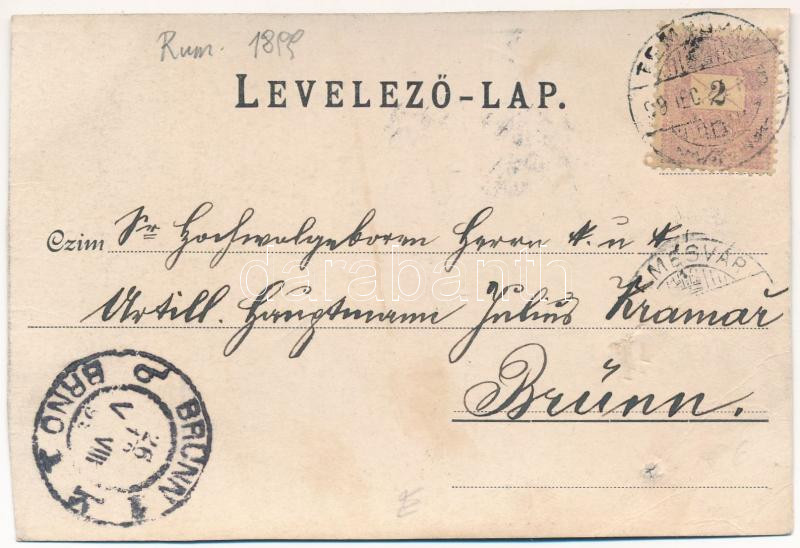 Rum. 1899
LEVELEZŐ-LAP.
2
Czim Sr Hochwolgeboren Herrn k. u. k.
MESVÁR
darabanth
Artill. Hauptmann Julius Kramař
Brünn.
BRÜNN 1
BRNO
26
VIII